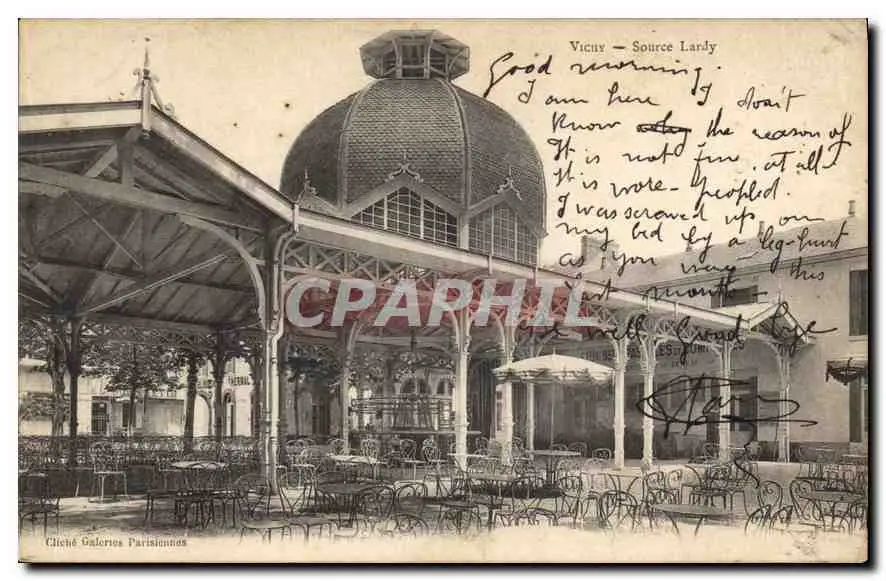 VICHY — Source Lardy
Good morning.
I am here I don't
know the reason of
It is not fine at all,
it is more peopled.
I was screwed up on
my bed by a leg-hurt
as you were this
last month
CPAPHIL
Cliché Galeries Parisiennes